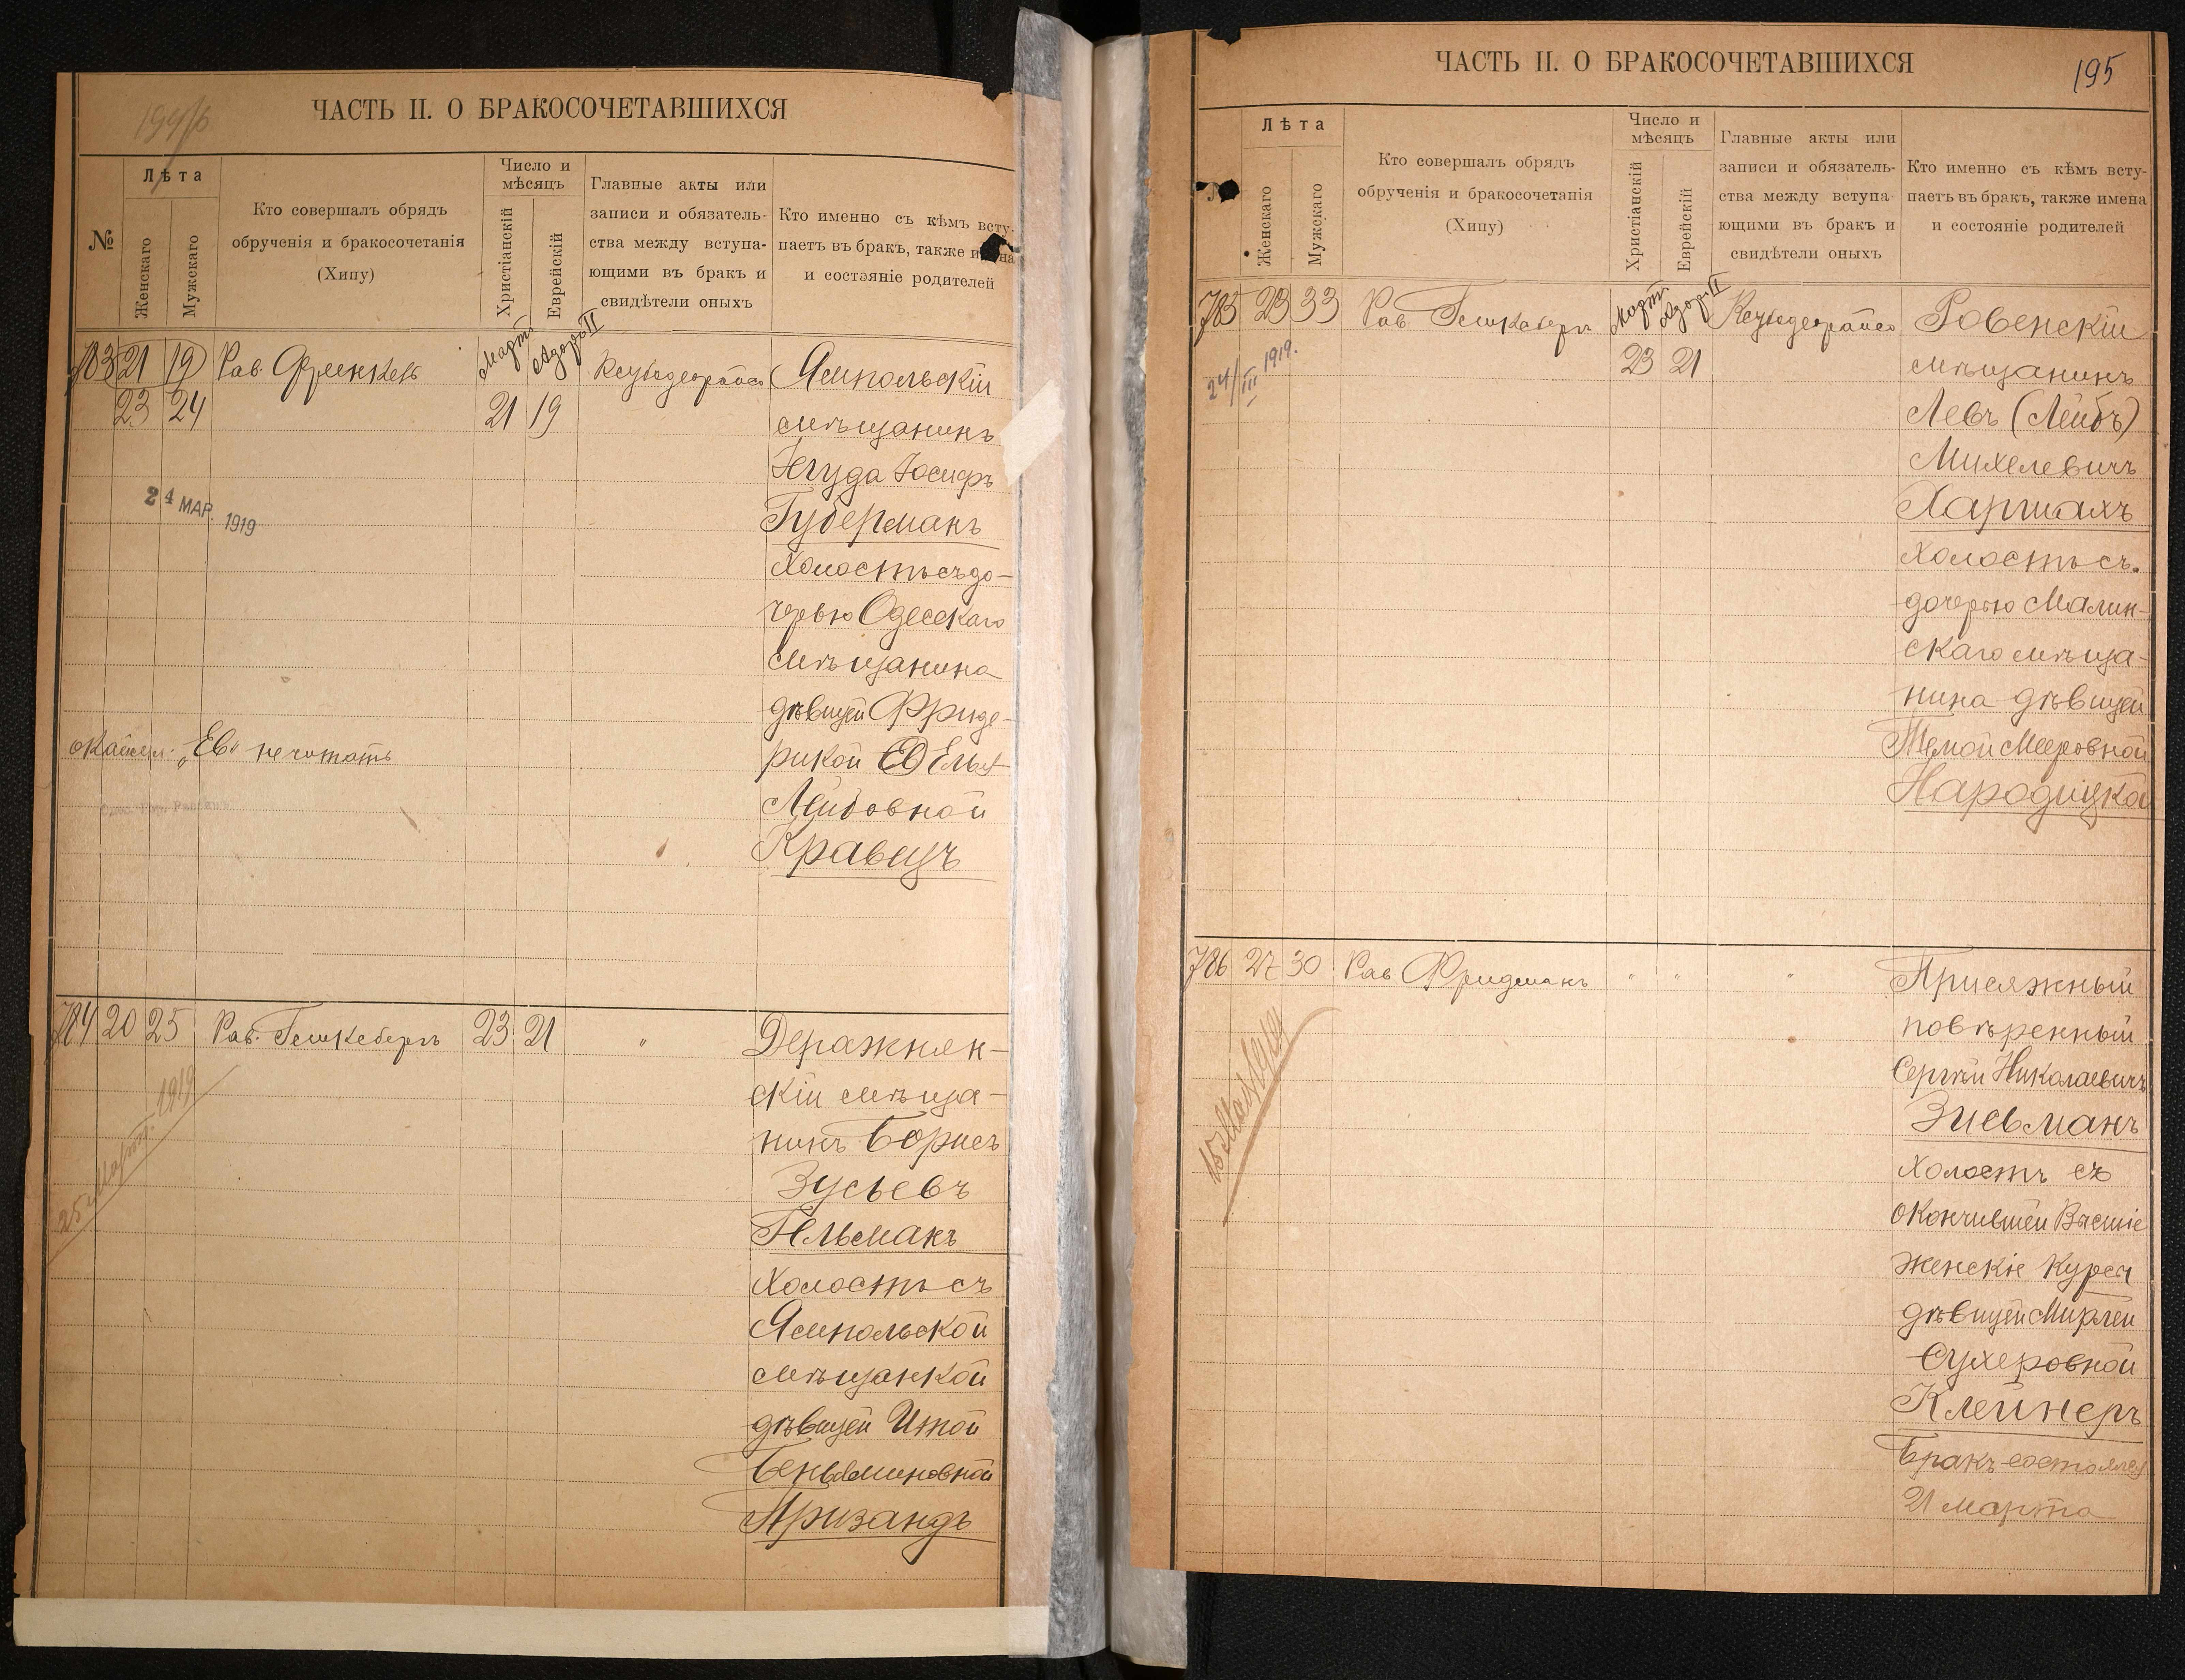 194/б
ЧАСТЬ II. О БРАКОСОЧЕТАВШИХСЯ
№
Лѣта
Женскаго
Мужскаго
Кто совершалъ обрядъ
обрученія и бракосочетанія
(Хипу)
Число и
мѣсяцъ
Христіанскій
Еврейскій
Главные акты или
записи и обязатель-
ства между вступа-
ющими въ бракъ и
свидѣтели оныхъ
Кто именно съ кѣмъ всту-
паетъ въ бракъ, также имена
и состояніе родителей
783 21 19 Рав. Френкель Мартъ Адаръ II Ямпольскій
23 24 21 19 мѣщанинъ
Іегуда Іосифъ
Губерманъ
24 МАР. 1919
холостъ съ до-
черью Одесскаго
мѣщанина
дѣвицей Фриде-
рикой Ев Елья
„Ев“ не читать
Лейбовной
Кравецъ
784 20 25 Рав. Гешкеберъ 23 21 " Деражнян-
скій мѣща-
нинъ Борисъ
Зусьевъ
Гельманъ
25 Март. 1919
холостъ съ
Ямпольской
мѣщанкой
дѣвицей Итой
Беньяминовной
Призандъ
195
ЧАСТЬ II. О БРАКОСОЧЕТАВШИХСЯ
№
Лѣта
Женскаго
Мужскаго
Кто совершалъ обрядъ
обрученія и бракосочетанія
(Хипу)
Число и
мѣсяцъ
Христіанскій
Еврейскій
Главные акты или
записи и обязатель-
ства между вступа-
ющими въ бракъ и
свидѣтели оныхъ
Кто именно съ кѣмъ всту-
паетъ въ бракъ, также имена
и состояніе родителей
785 23 33 Рав Гешкеберъ Мартъ Адаръ II Ровенскій
24/III 1919. 23 21 мѣщанинъ
Левъ (Лейбъ)
Михелевичъ
Харшахъ
холостъ съ
дочерью Малин-
скаго мѣща-
нина дѣвицей
Темой Мееровной
Народицкой
786 27 30 Рав Фридманъ " " " Присяжный
повѣренный
Сергѣй Николаевичъ
Зисьманъ
холостъ съ
окончившей Высшіе
женскіе курсы
дѣвицей Мирлей
Сухеровной
Клейнеръ
Бракъ состоялся
21 марта